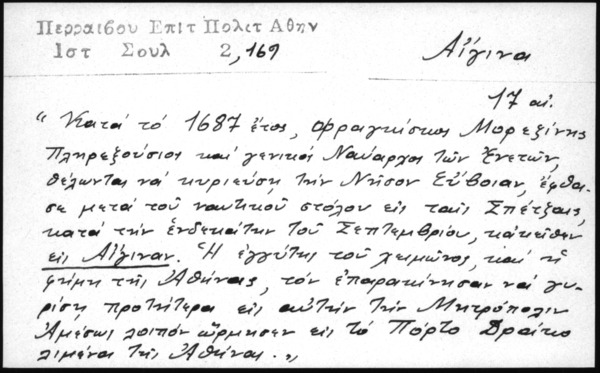 Περραιβου Επιτ Πολιτ Αθην
Ιστ Σουλ 2, 169
Αἴγινα
17 αἰ.
"Κατά τό 1687 ἔτος, Φραγκίσκος Μορεζίνης
Πληρεξούσιος καί γενικός Ναύαρχος τῶν Ἑνετῶν,
θέλωντας νά κυριεύση τήν Νῆσον Εὔβοιαν, ἔφθα-
σε μετά τοῦ ναυτικοῦ στόλου εἰς ταῖς Σπέτζαις,
κατά τήν ἑνδεκάτην τοῦ Σεπτεμβρίου, κἀκεῖθεν
εἰς Αἴγιναν. Ἡ ἐγγύτης τοῦ χειμῶνος, καί ἡ
φήμη τῆς Ἀθήνας, τόν ἐπαρακίνησαν νά γυ-
ρίση προτήτερα εἰς αὐτήν τήν Μητρόπολιν
Ἀμέσως λοιπόν ὥρμησεν εἰς τό Πόρτο Δράκο
λιμένα τῆς Ἀθήνας."